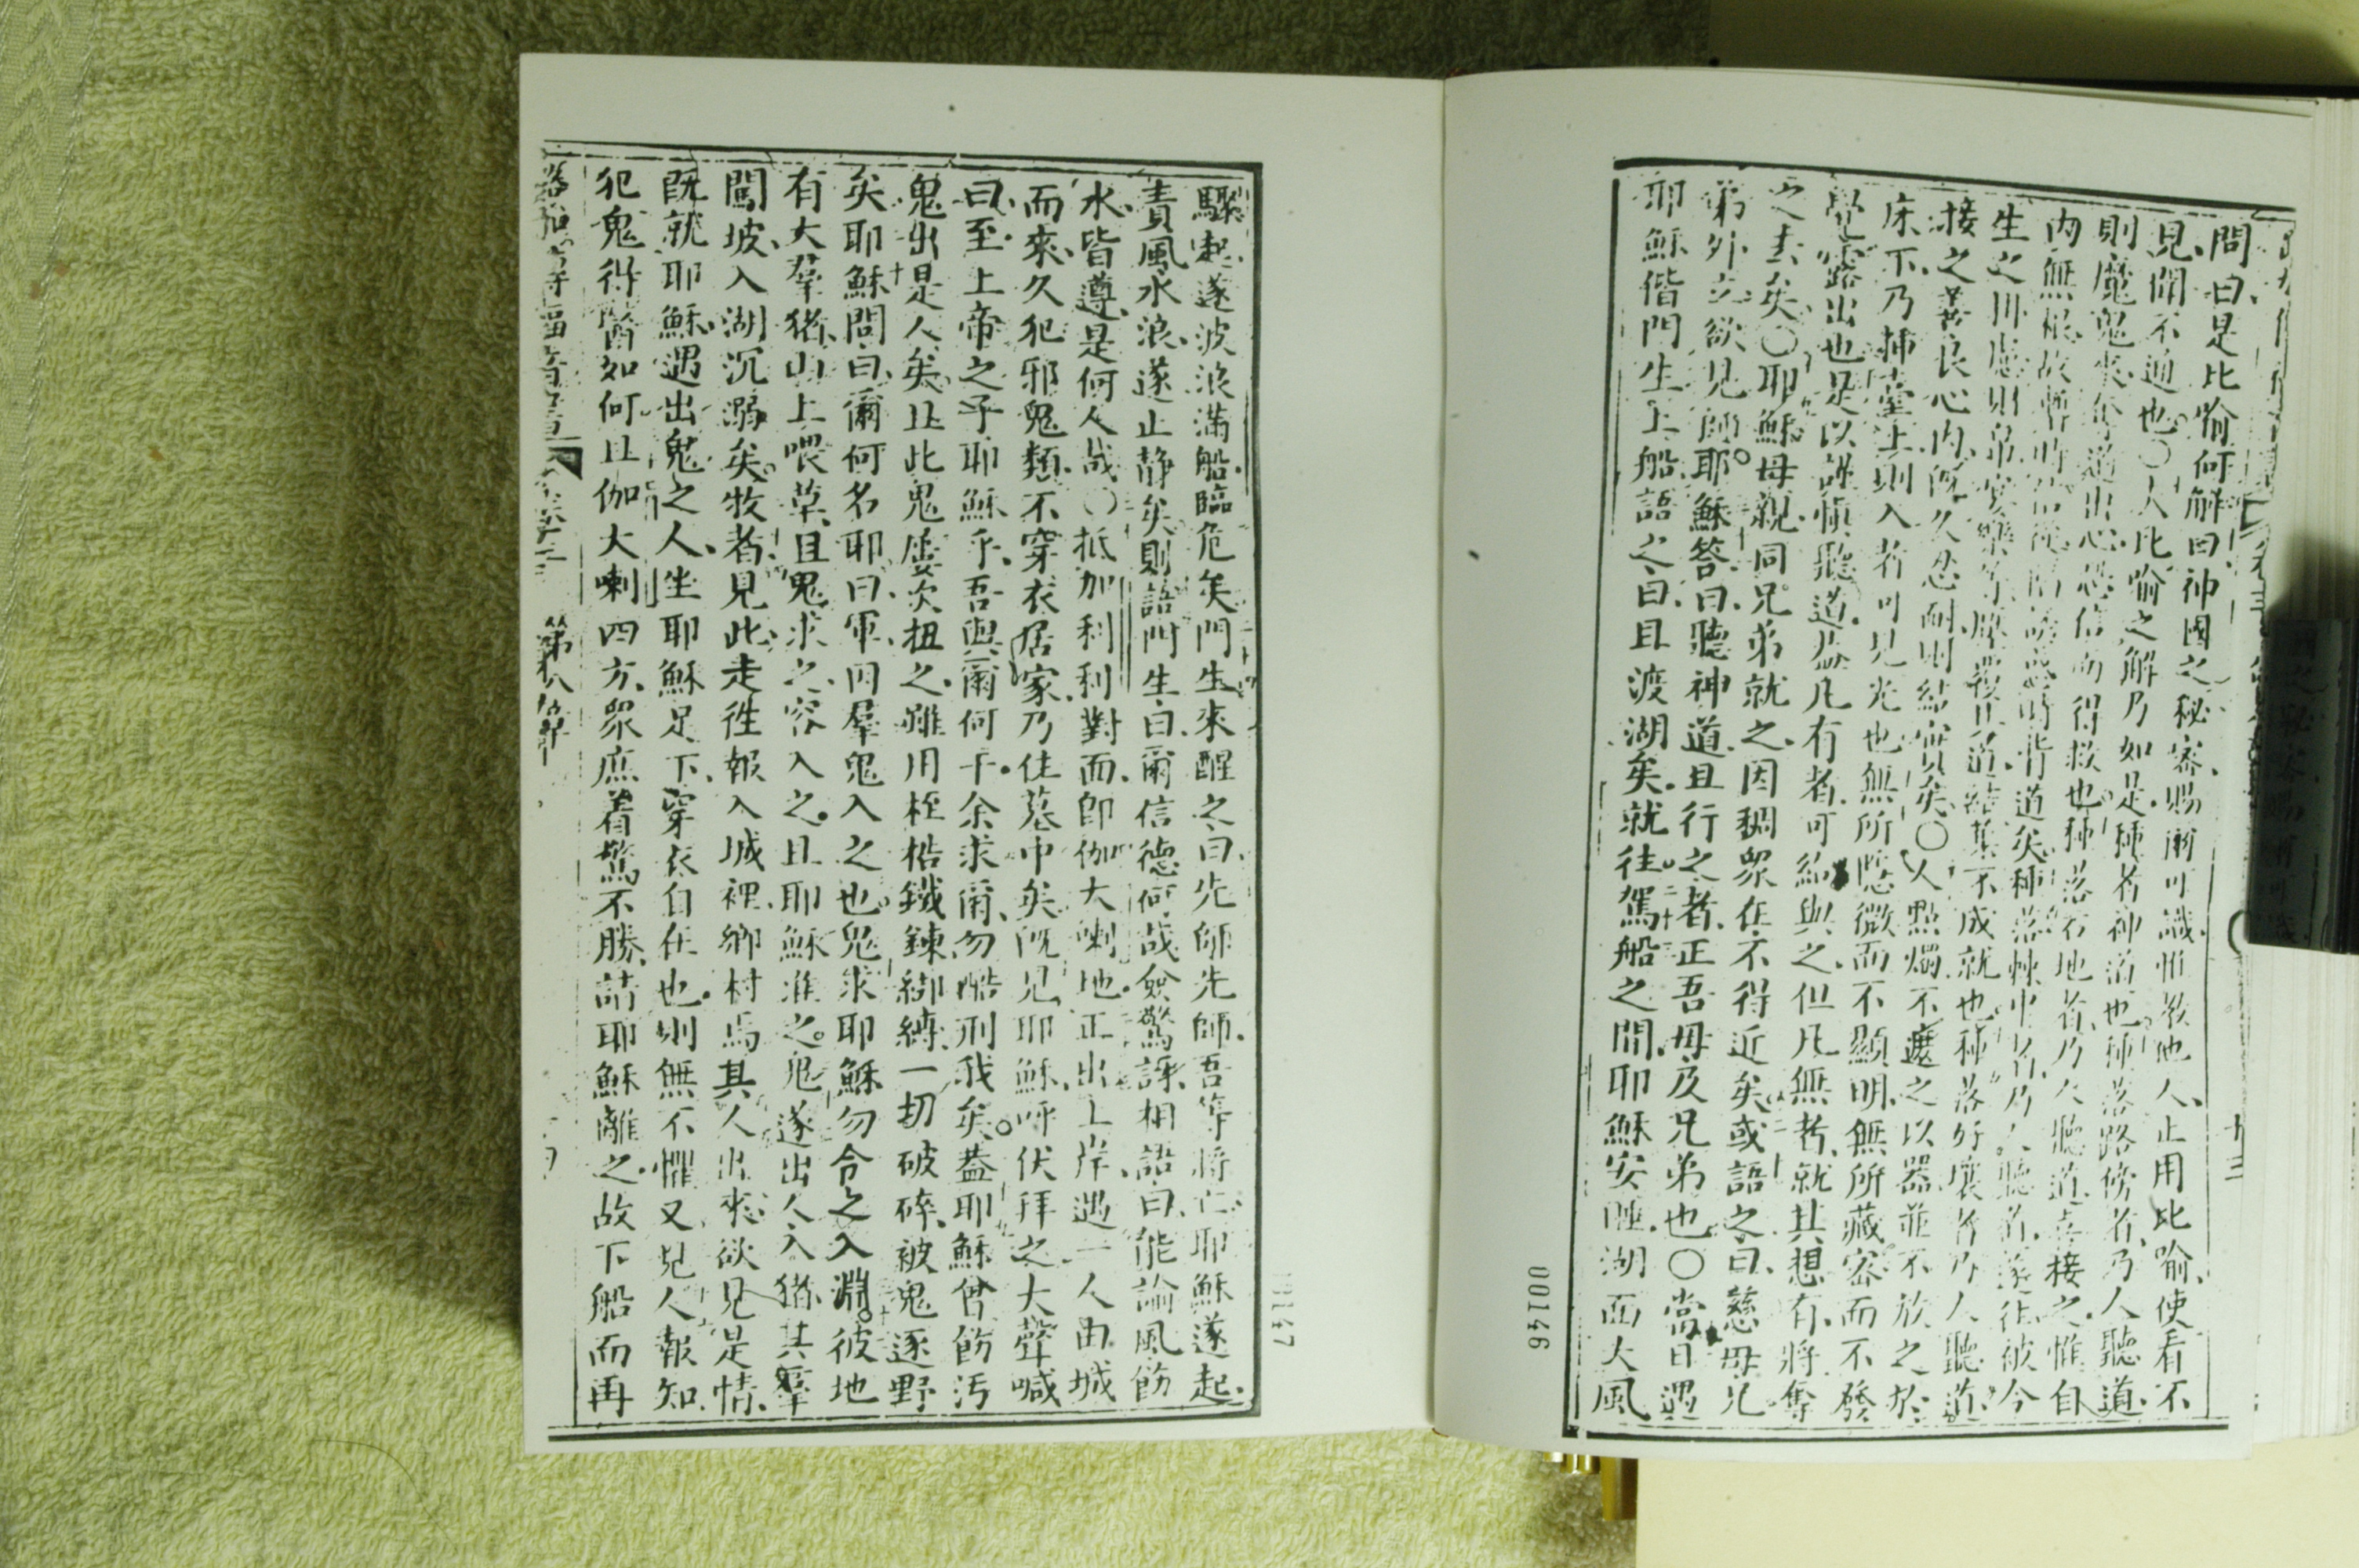 問曰是比喻何解曰神國之秘密賜爾可識惟教他人止用比喻使看不
見聞不通也〇人比喻之解乃如是種者神道也種落路傍者乃人聽道
則魔鬼來奪道出心恐信而得救也種落石地者乃人聽道喜接之惟自
內無根故暫時信從時背道矣種落棘中者乃人聽道遂徃被今
生之富樂等壓覆其道結菓不成就也種落好壤者乃人聽道
接之善良心內久忍耐則結實矣〇人點燭不遮之以器並不放之於
床下乃插臺上則入者可見光也無所隱微而不顯明無所藏密而不發
覺露出也是以謹慎聽道蓋凡有者可給與之但凡無者就其想有將奪
之去矣〇耶穌母親同兄弟就之因稠眾在不得近矣或語之曰慈母兄
弟外立欲見師耶穌答曰聽神道且行之者正吾母及兄弟也〇當日遇
耶穌偕門生上船語之曰且渡湖矣就往駕船之間耶穌安睡湖面大風
十三
00146
驟起遂波浪滿船臨危矣門生來醒之曰先師先師吾等將亡耶穌遂起
責風水浪遂止靜矣則語門生曰爾信德何哉僉驚訝相語曰能諭風飭
水皆遵是何人哉〇抵加利利對面即伽大喇地正出上岸遇一人由城
而來久犯邪鬼類不穿衣居家乃住墓中矣既見耶穌呼伏拜之大聲喊
曰至上帝之子耶穌乎吾與爾何干余求爾勿酷刑我矣蓋耶穌曾飭污
鬼出是人矣且此鬼屢次扭之雖用桎梏鐵鍊綁縛一切破碎被鬼逐野
矣耶穌問曰爾何名耶曰軍因羣鬼入之也鬼求耶穌勿令之入淵彼地
有大羣猪山上喂草且鬼求之容入之且耶穌准之鬼遂出人入猪其羣
闖坡入湖沉溺矣牧者見此走徃報入城裡鄉村焉其人出來欲見是情
既就耶穌遇出鬼之人坐耶穌足下穿衣自在也則無不懼又見人報知
犯鬼得醫如何且伽大喇四方眾庶着驚不勝請耶穌離之故下船而再
路加傳福音書 卷三 第八章
00147